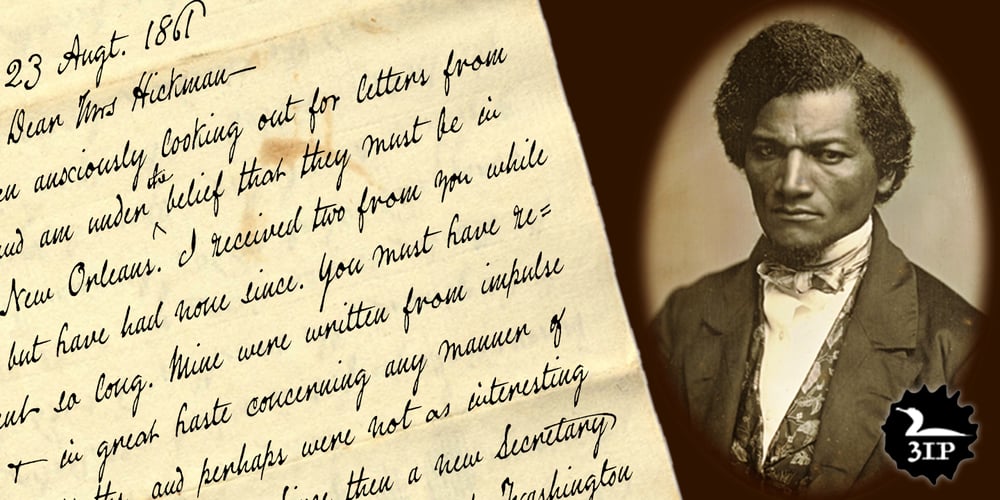 23 Augt. 1861
Dear Mrs Hickman—
en anxiously looking out for letters from
and am under the belief that they must be in
New Orleans. I received two from you while
but have had none since. You must have re=
ent so long. Mine were written from impulse
+ in great haste concerning any manner of
and perhaps were not as interesting
then a new Secretary
Washington
3IP